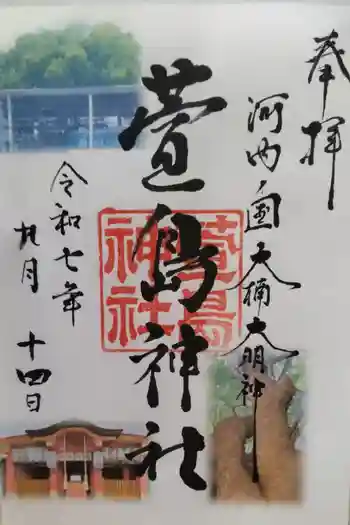 奉拝
河内国大楠大明神
萱島神社
萱島神社
令和七年
九月十四日